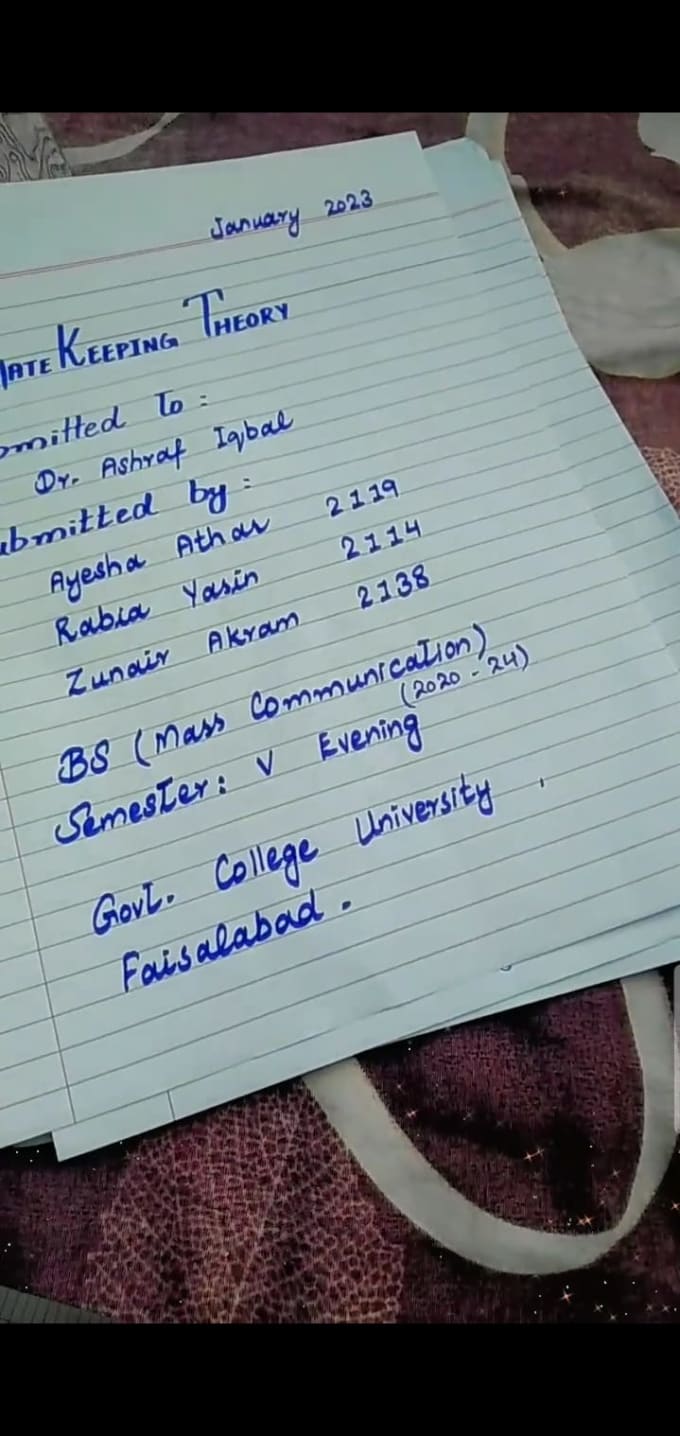 January 2023
ATE KEEPING THEORY
mitted To :
Dr. Ashraf Iqbal
ubmitted by :
Ayesha Athar 2119
Rabia Yasin 2114
Zunair Akram 2138
BS (Mass Communication)
(2020 - 24)
Semester: V Evening
Govt. College University
Faisalabad.